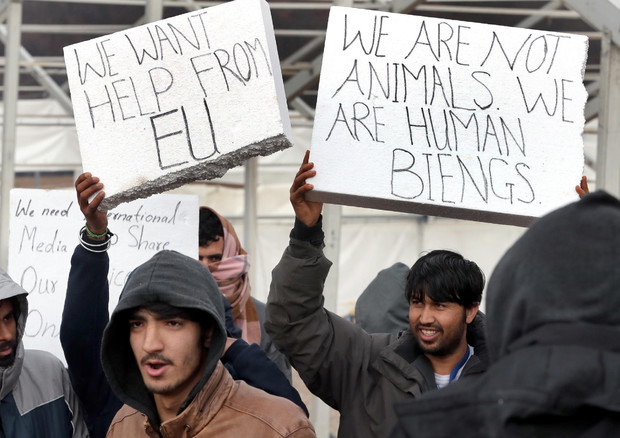 WE WANT
HELP FROM
EU
WE ARE NOT
ANIMALS. WE
ARE HUMAN
BIENGS.
We need International
Media Share
Our
On